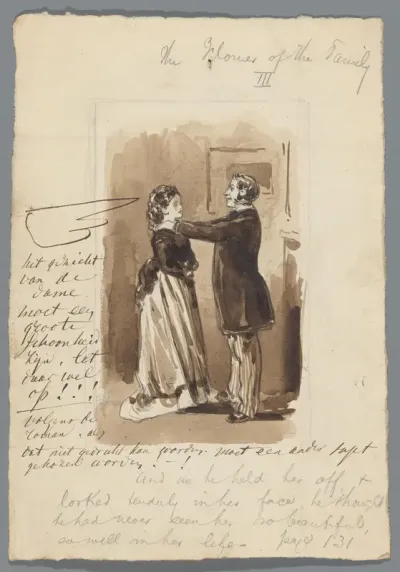 The Flower of the Family
III
Het gezicht
van de
dame
moet een
groote
schoonheid
zijn, let
daar wel
op!!!
volgens de
roman, als
dat niet gedrukt kan worden moet een ander sujet
gekozen worden!—!
and as he held her off, &
looked tenderly in her face he thought
he had never seen her so beautiful,
so well in her life— page 131